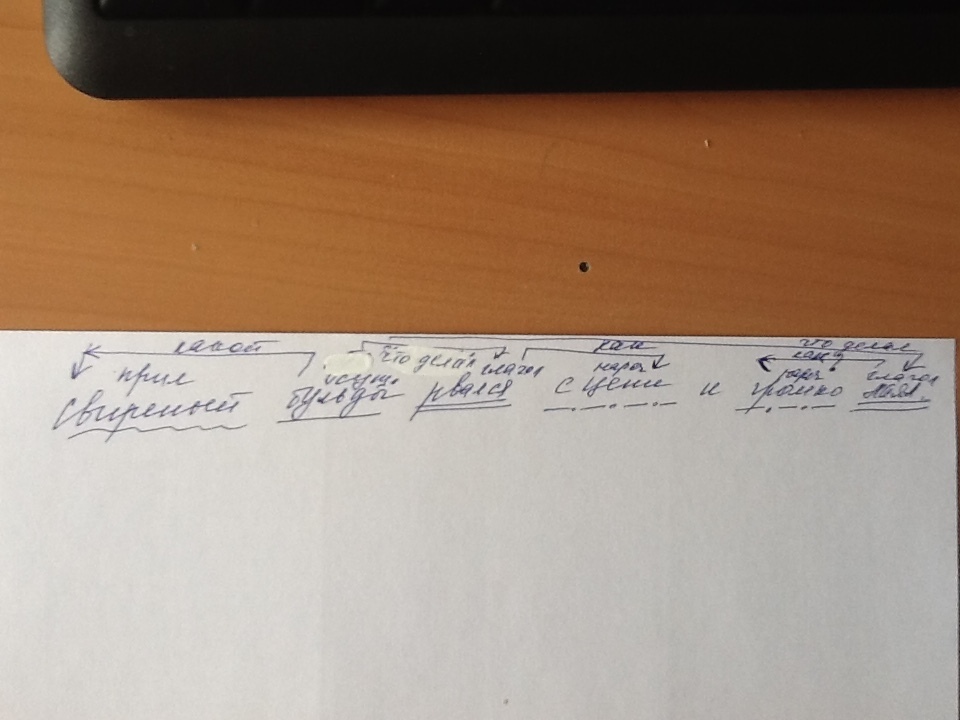 какой что делал как что делал
прил сущ. глагол нареч как нареч глагол
свирепый бульдог рвался с цепи и громко лаял.